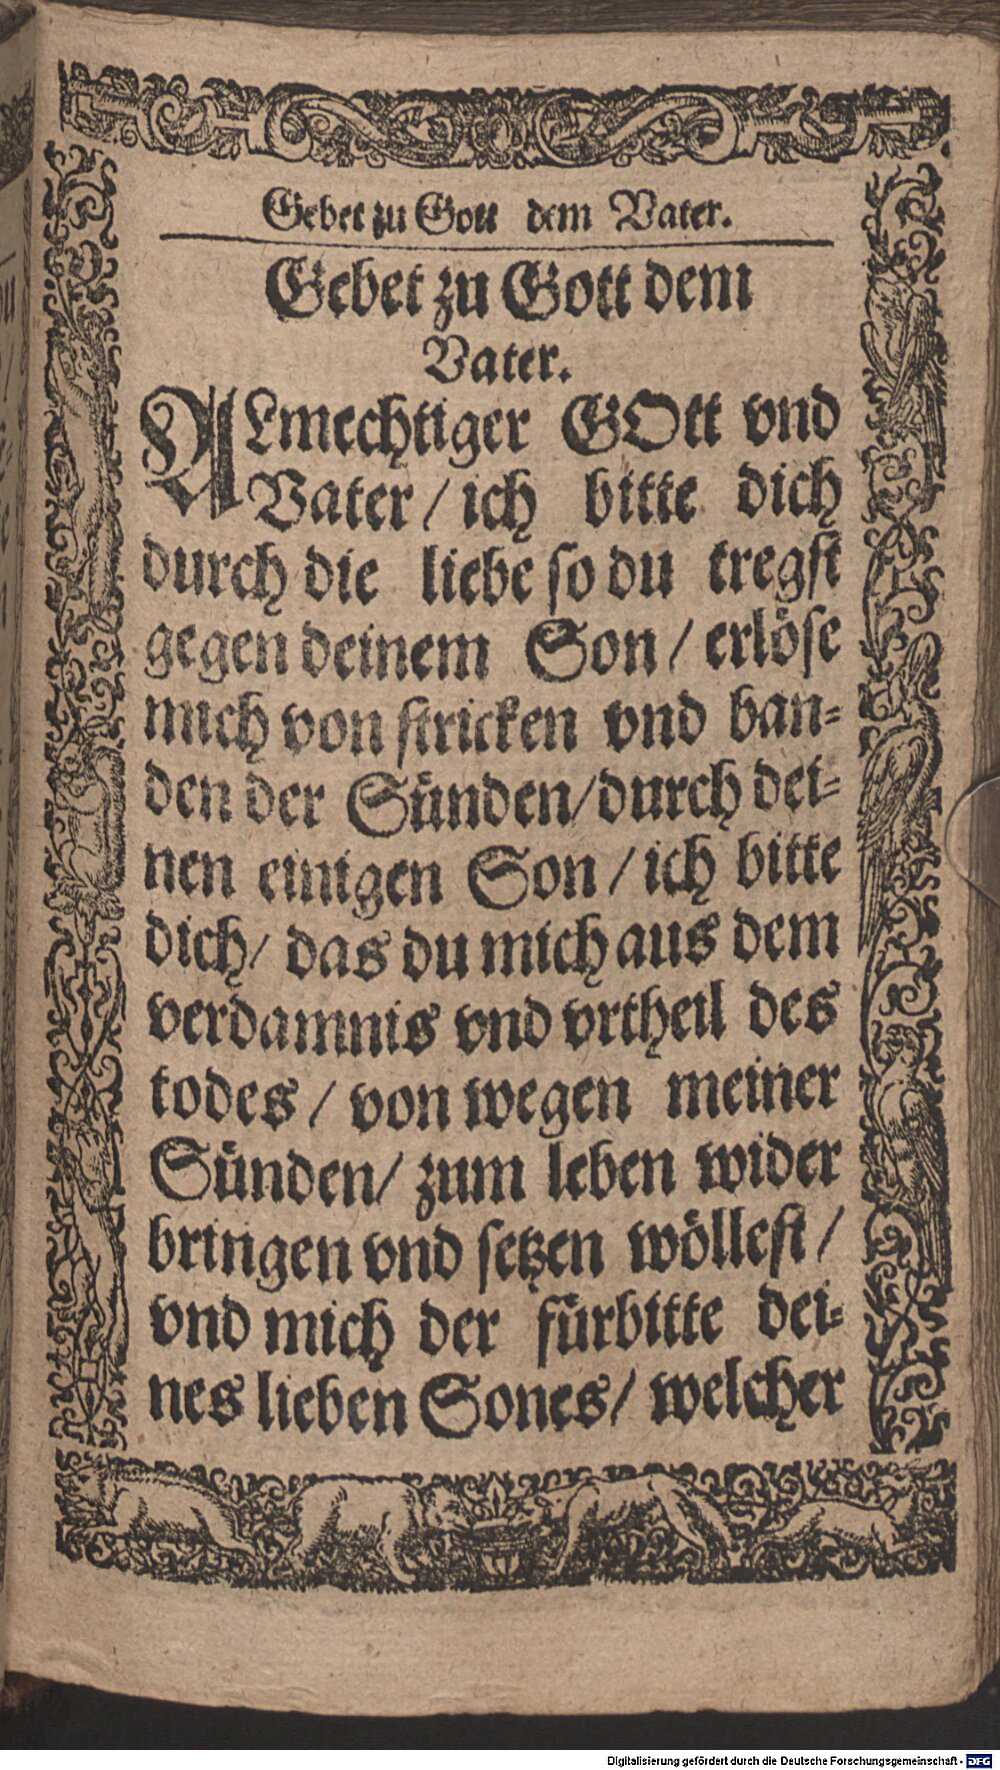 Gebet zu Gott dem Vater.
Gebet zu Gott dem
Vater.
ALmechtiger GOtt vnd
Vater / ich bitte dich
durch die liebe so du tregst
gegen deinem Son / erlöse
mich von stricken vnd ban-
den der Sünden / durch dei-
nen einigen Son / ich bitte
dich / das du mich aus dem
verdamnis vnd vrtheil des
todes / von wegen meiner
Sünden / zum leben wider
bringen vnd setzen wöllest /
vnd mich der fürbitte dei-
nes lieben Sones / welcher
Digitalisierung gefördert durch die Deutsche Forschungsgemeinschaft - DFG